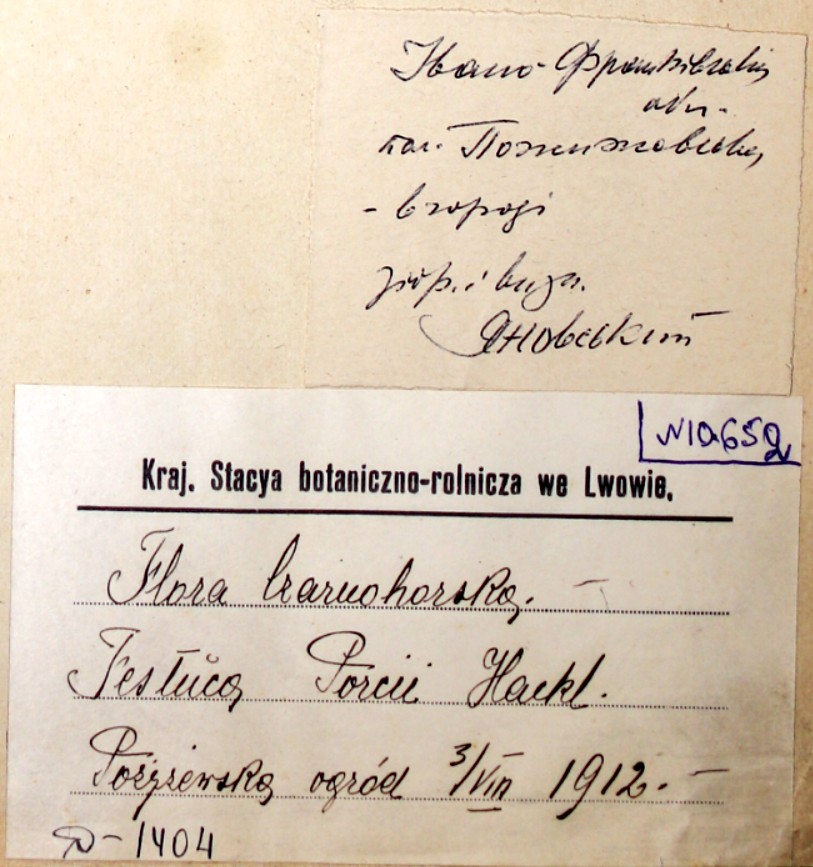 Івано-Франківська
обл.
пол. Пожижевська,
- в городі
зібр. і визн.
Яновський
№10659
Kraj. Stacya botaniczno-rolnicza we Lwowie.
Flora Czarnohorska. -
Festuca Porcii Hackl.
Pożyżewska ogród 3/VIII 1912. -
D-1404